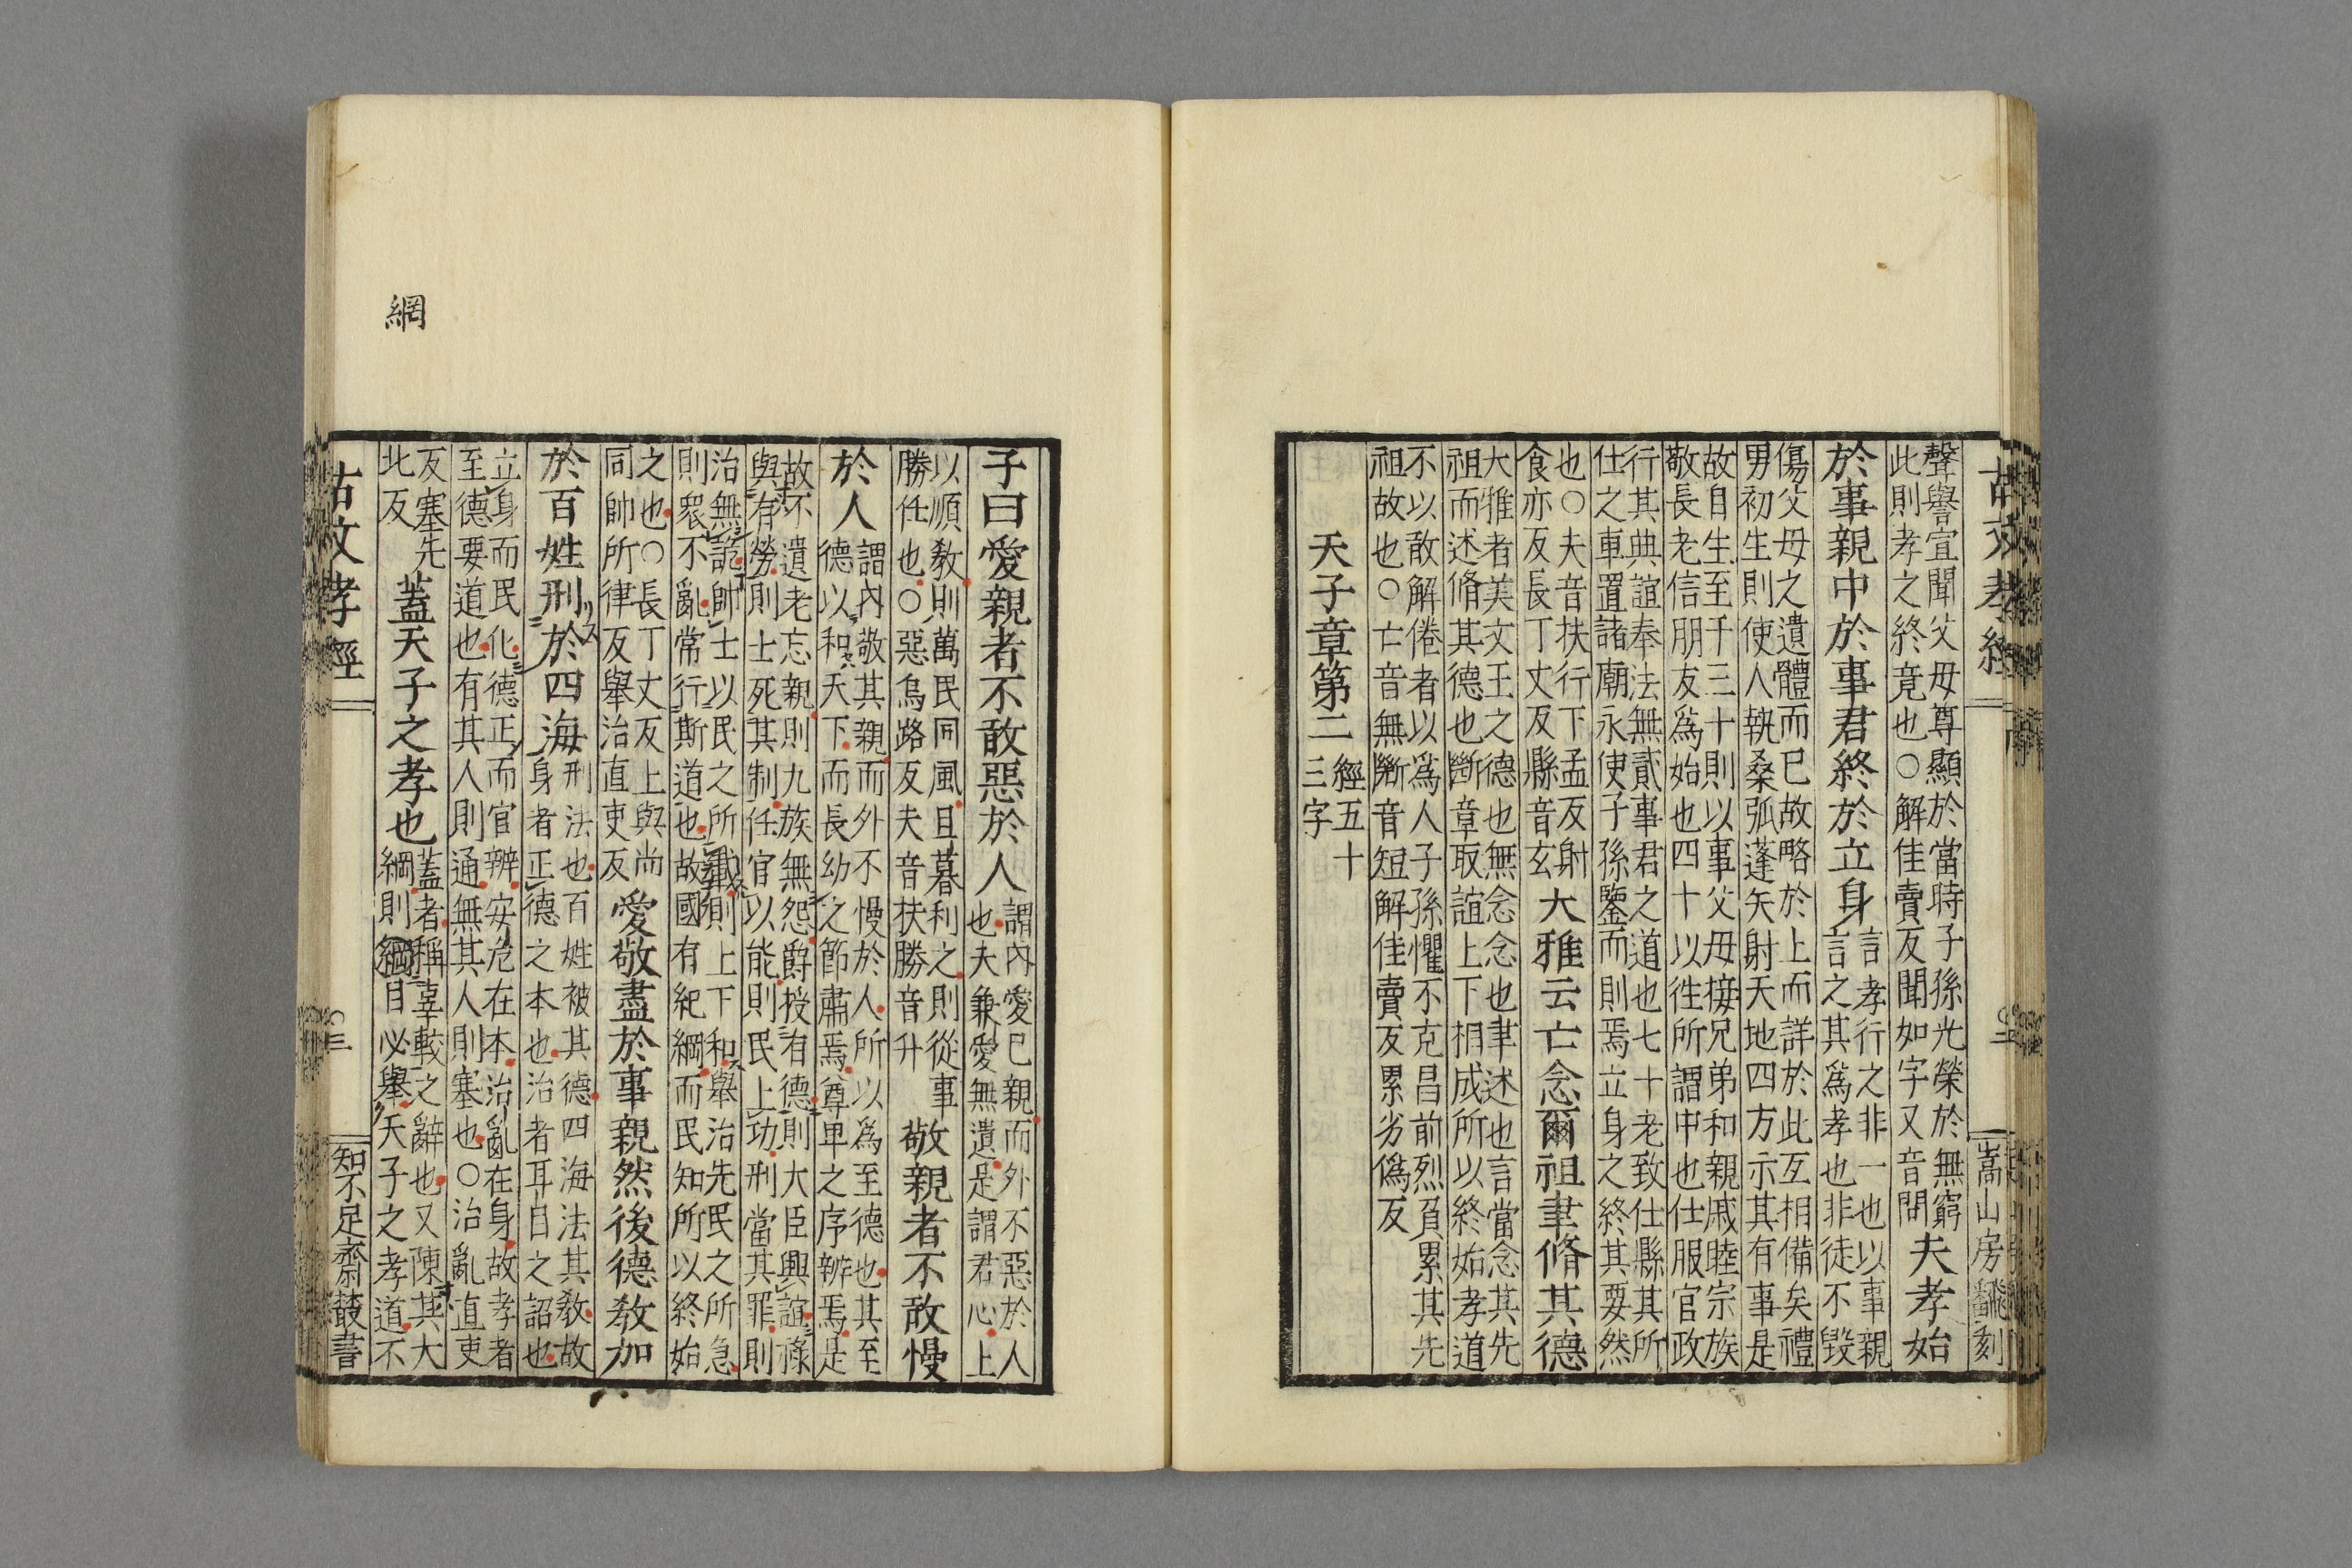 古文孝經 二 嵩山房翻刻
聲譽宜聞父母尊顯於當時子孫光榮於無窮
此則孝之終竟也○解佳賣反聞如字又音問
夫孝始
於事親中於事君終於立身
言孝行之非一也以事親
言之其爲孝也非徒不毀
傷父母之遺體而已故略於上而詳於此互相備矣禮
男初生則使人執桑弧蓬矢射天地四方示其有事是
故自生至于三十則以事父母接兄弟和親戚睦宗族
敬長老信朋友爲始也四十以徃所謂中也仕服官政
行其典誼奉法無貳事君之道也七十老致仕縣其所
仕之車置諸廟永使子孫鑒而則焉立身之終其要然
也○夫音扶行下孟反射
食亦反長丁丈反縣音玄
大雅云亡念爾祖聿脩其德
大雅者美文王之德也無念念也聿述也言當念其先
祖而述脩其德也斷章取誼上下相成所以終始孝道
不以敢解倦者以爲人子孫懼不克昌前烈負累其先
祖故也○亡音無斷音短解佳賣反累劣僞反
天子章第二
經五十
三字
子曰愛親者不敢惡於人
謂內愛已親而外不惡於人
也夫兼愛無遺是謂君心上
以順敎則萬民同風旦暮利之則從事
勝任也○惡烏路反夫音扶勝音升
敬親者不敢慢
於人
謂內敬其親而外不慢於人所以爲至德也其至
德以和天下而長幼之節肅焉尊卑之序辨焉是
故不遺老忘親則九族無怨爵授有德則大臣興誼祿
與有勞則士死其制任官以能則民上功刑當其罪則
治無詭帥士以民之所載則上下和舉治先民之所急
則衆不亂常行斯道也故國有紀綱而民知所以終始
之也○長丁丈反上與尚
同帥所律反舉治直吏反
愛敬盡於事親然後德敎加
於百姓刑於四海
刑法也百姓被其德四海法其敎故
身者正德之本也治者耳目之詔也
立身而民化德正而官辨安危在本治亂在身故孝者
至德要道也有其人則通無其人則塞也○治亂直吏
反塞先
北反
蓋天子之孝也
蓋者稱辜較之辭也又陳其大
綱則綱目必舉天子之孝道不
古文孝經 三 知不足齋叢書
網